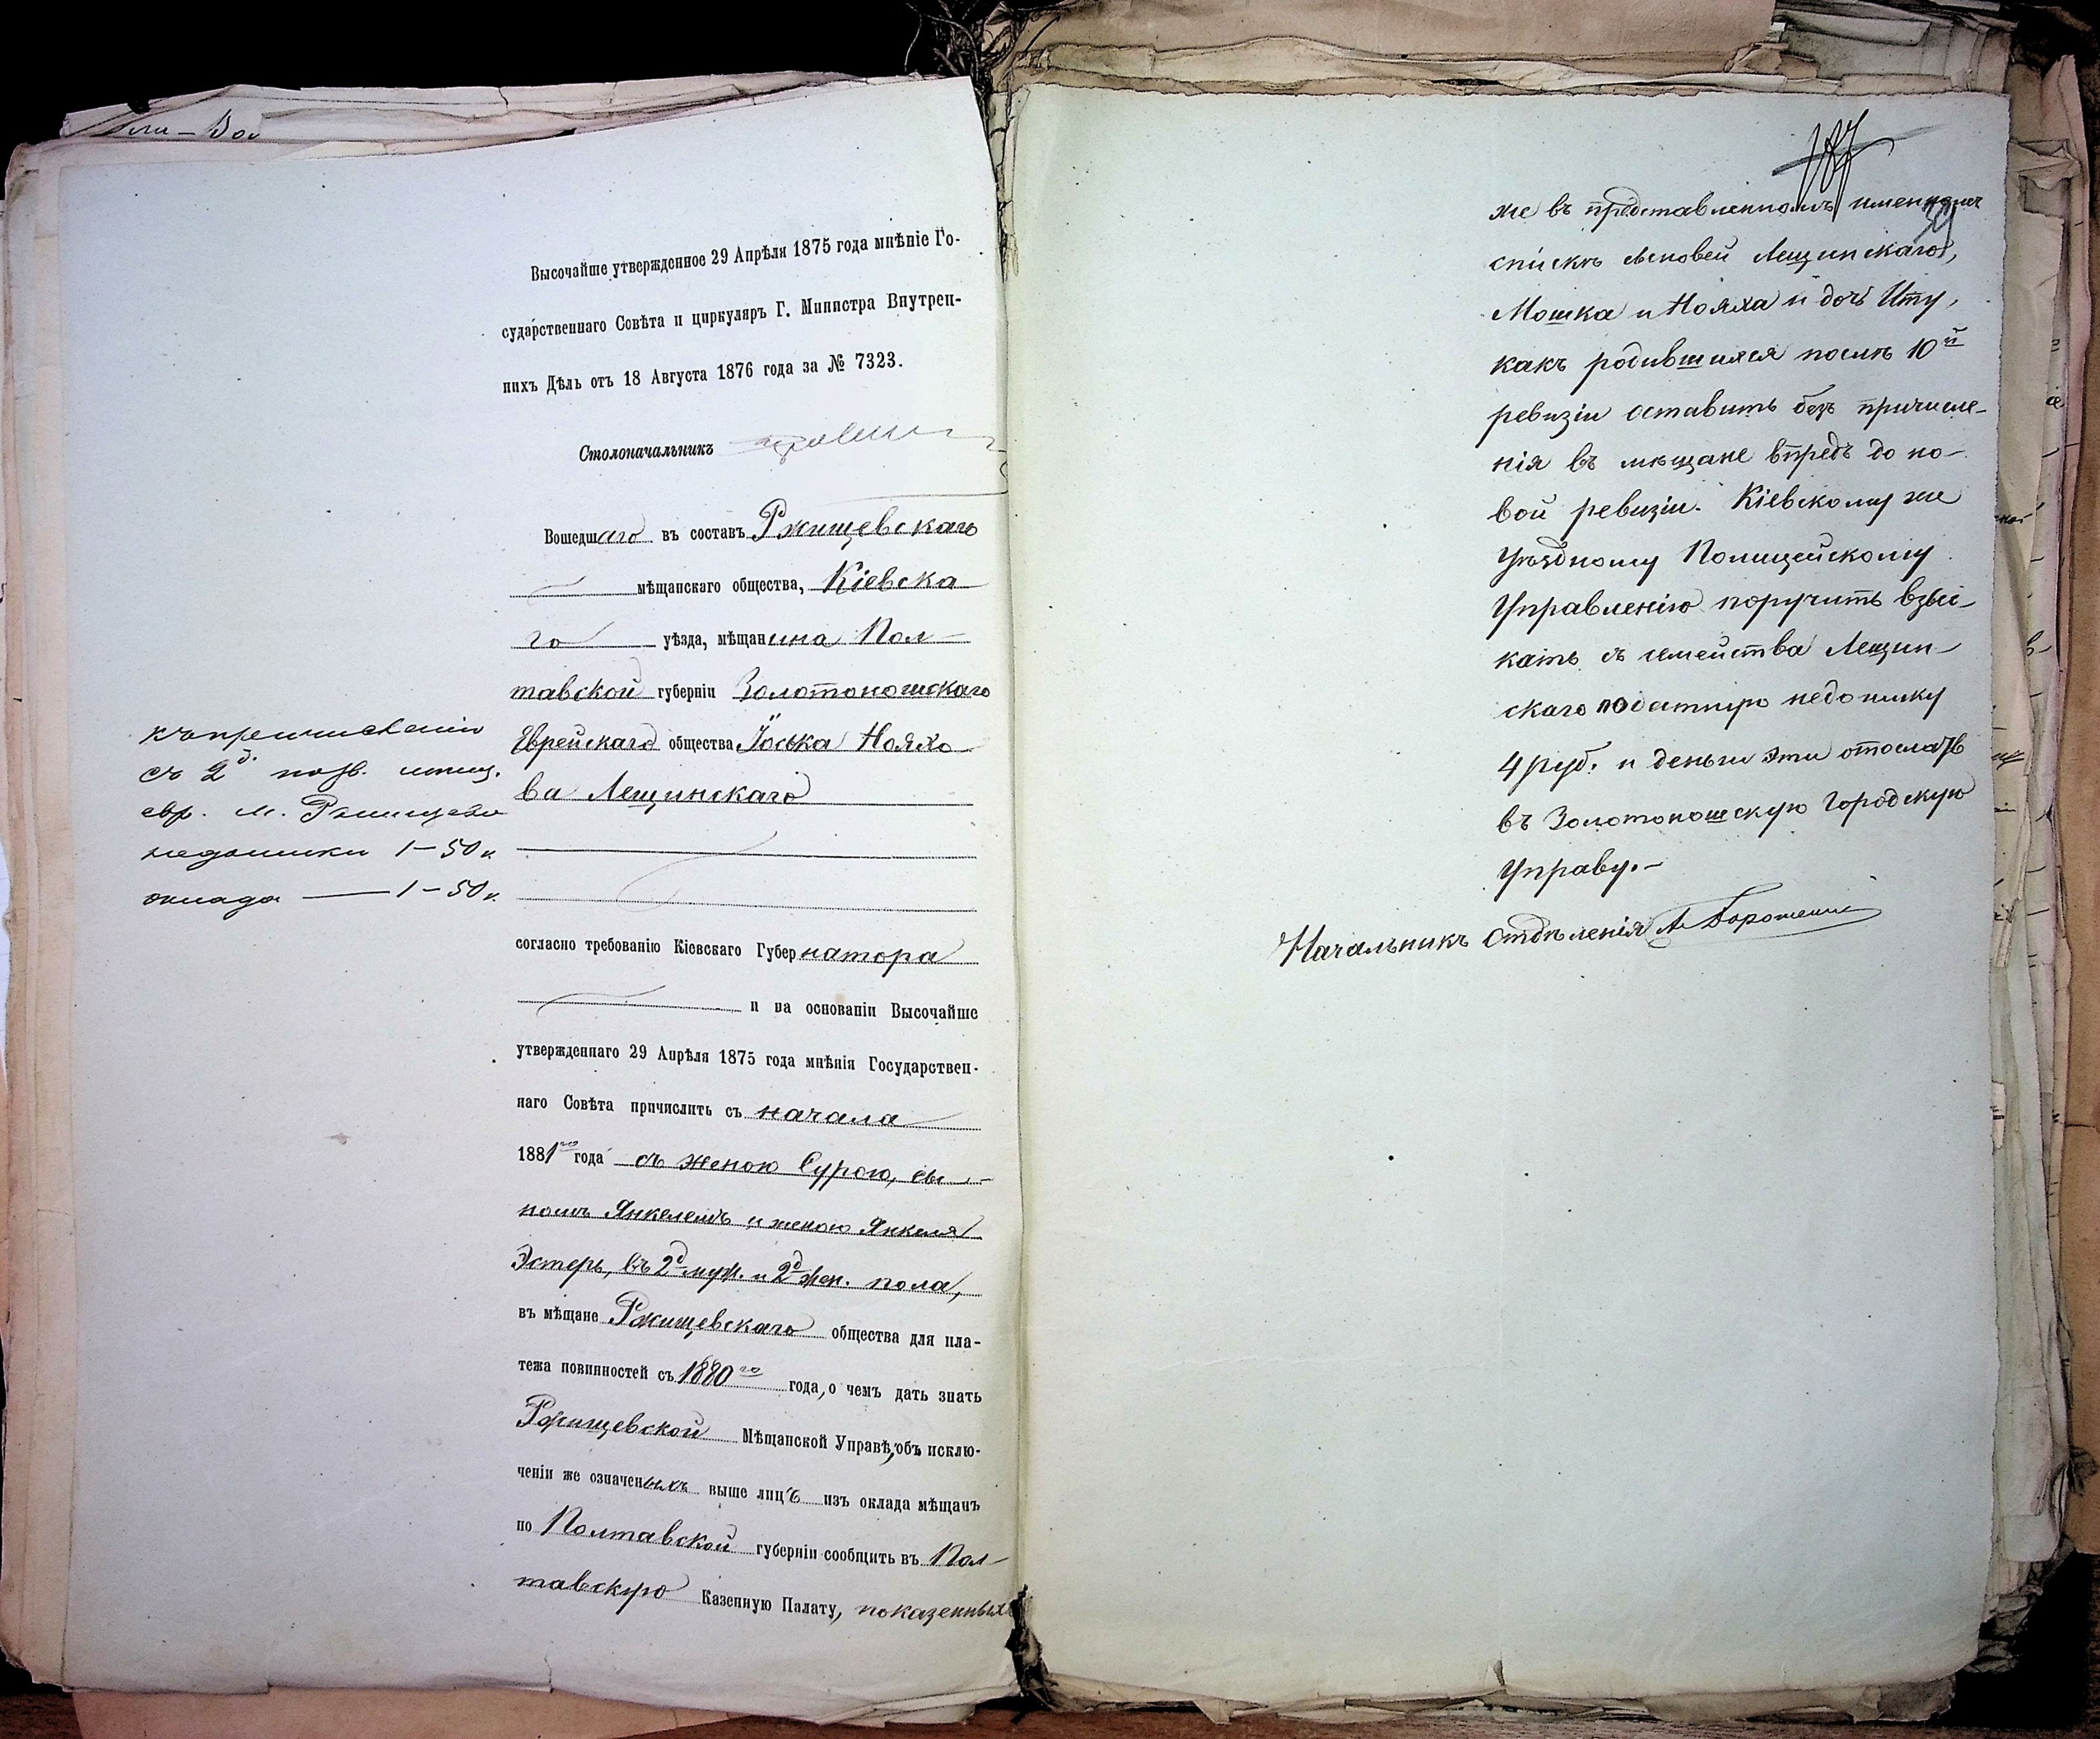 Высочайше утвержденное 29 Апрѣля 1875 года мнѣніе Го-
сударственнаго Совѣта и циркуляръ Г. Министра Внутрен-
нихъ Дѣлъ отъ 18 Августа 1876 года за № 7323.
Столоначальникъ
Вошедшаго въ составъ Ржищевскаго
мѣщанскаго общества, Кіевска
го уѣзда, мѣщанина Пол-
тавской губерніи Золотоношскаго
Еврейскаго общества Іоська Нояхо-
ва Лещинскаго
согласно требованію Кіевскаго Губернатора
и на основаніи Высочайше
утвержденнаго 29 Апрѣля 1875 года мнѣнія Государствен-
наго Совѣта причислить съ начала
1881го года съ женою Сурою, сы-
номъ Янкелемъ и женою Янкеля
Эстерь, въ 2д муж. и 2д жен. пола,
въ мѣщане Ржищевскаго общества для пла-
тежа повинностей съ 1880го года, о чемъ дать знать
Ржищевской Мѣщанской Управѣ, объ исклю-
ченіи же означенныхъ выше лицъ изъ оклада мѣщанъ
по Полтавской губерніи сообщить въ Пол-
тавскую Казенную Палату, показанныхъ
къ причисленію
съ 2д.
евр. м. Ржищева
недоимки 1-50 к.
оклада — 1-50 к.
же въ представленномъ именномъ
спискѣ сыновей Лещинскаго,
Мошка и Нояха и дочь Иту,
какъ родившихся послѣ 10й
ревизіи оставить безъ причисле-
нія въ мѣщане впредь до но-
вой ревизіи. Кіевскому же
Уѣздному Полицейскому
Управленію поручить взыс-
кать съ семейства Лещин-
скаго податную недоимку
4 руб. и деньги эти отослать
въ Золотоношскую Городскую
Управу.-
Начальникъ Отдѣленія А.